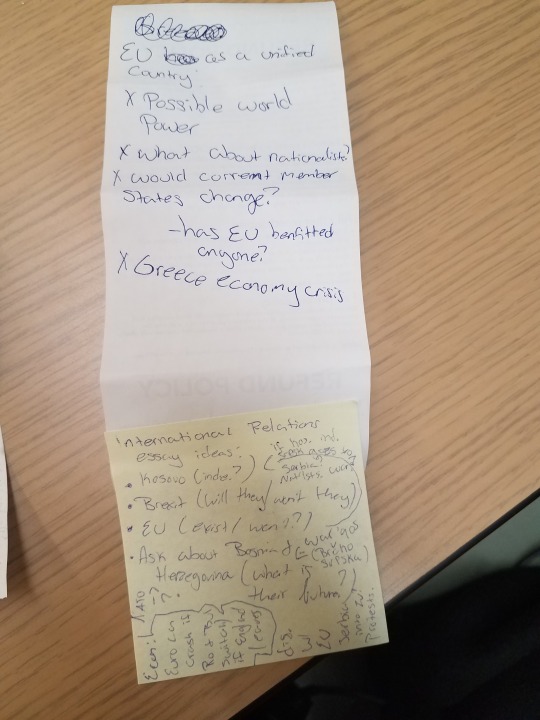 EU as a unified
country:
x Possible world
Power
x what about nationalists?
x would current member
states change?
-has EU benfitted
anyone?
x Greece economy crisis
REFUND POLICY
International Relations
essay ideas:
• Kosovo (inde.?)
if kos. ind.
Serbia?
• Brexit (will they/won't they)
• EU (exist/won't?)
• Ask about Bosnia &
Herzegovina (what is
their future?)
war 'gos
(Brčko
Srpska)
Econ:
Euro can
crash if
switch
if England
leaves
dis.
w/
EU
Serbia
into EU
Protests.